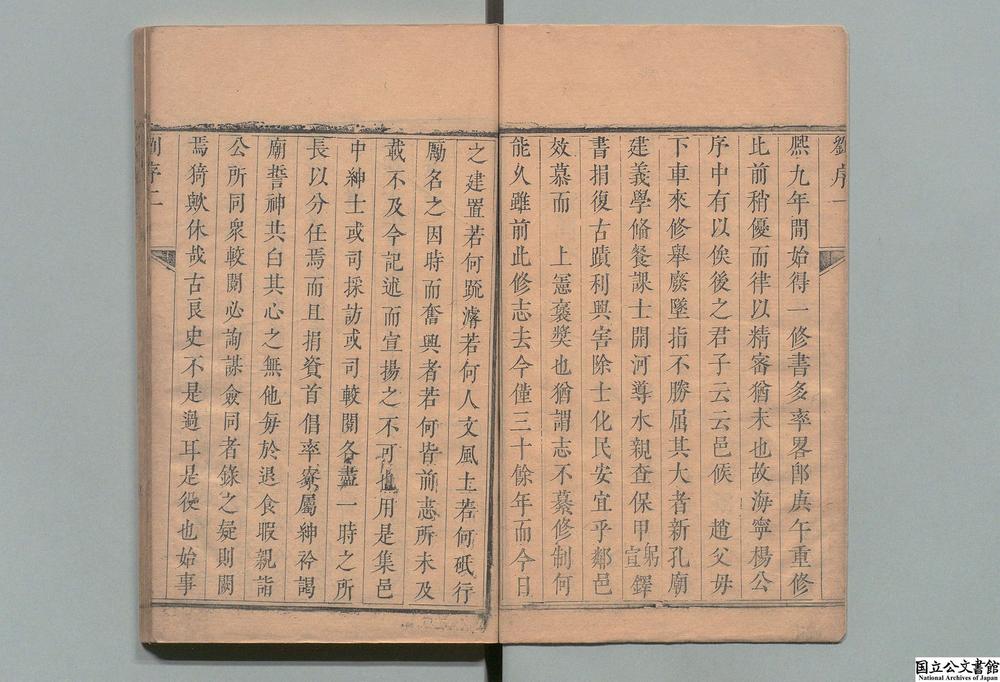 劉序一
熈九年間始得一修書多率畧卽庚午重修
比前稍優而律以精審猶未也故海寧楊公
序中有以俟後之君子云云邑侯　趙父母
下車來修舉廢墜指不勝屈其大者新孔廟
建義學俻餐課士開河導水親查保甲躬宣鐸
書捐復古蹟利興害除士化民安宜乎鄰邑
效慕而　上憲褒奬也猶謂志不纂修制何
能久雖前此修志去今僅三十餘年而今日
之建置若何䟽濬若何人文風土若何砥行
勵名之因時而奮興者若何皆前志所未及
載不及今記述而宣揚之不可也用是集邑
中紳士或司採訪或司較閱各盡一時之所
長以分任焉而且捐資首倡率寮屬紳衿謁
廟誓神共白其心之無他每於退食暇親詣
公所同衆較閱必詢謀僉同者錄之疑則闕
焉猗歟休哉古良史不是過耳是役也始事
劉序二
国立公文書館
National Archives of Japan